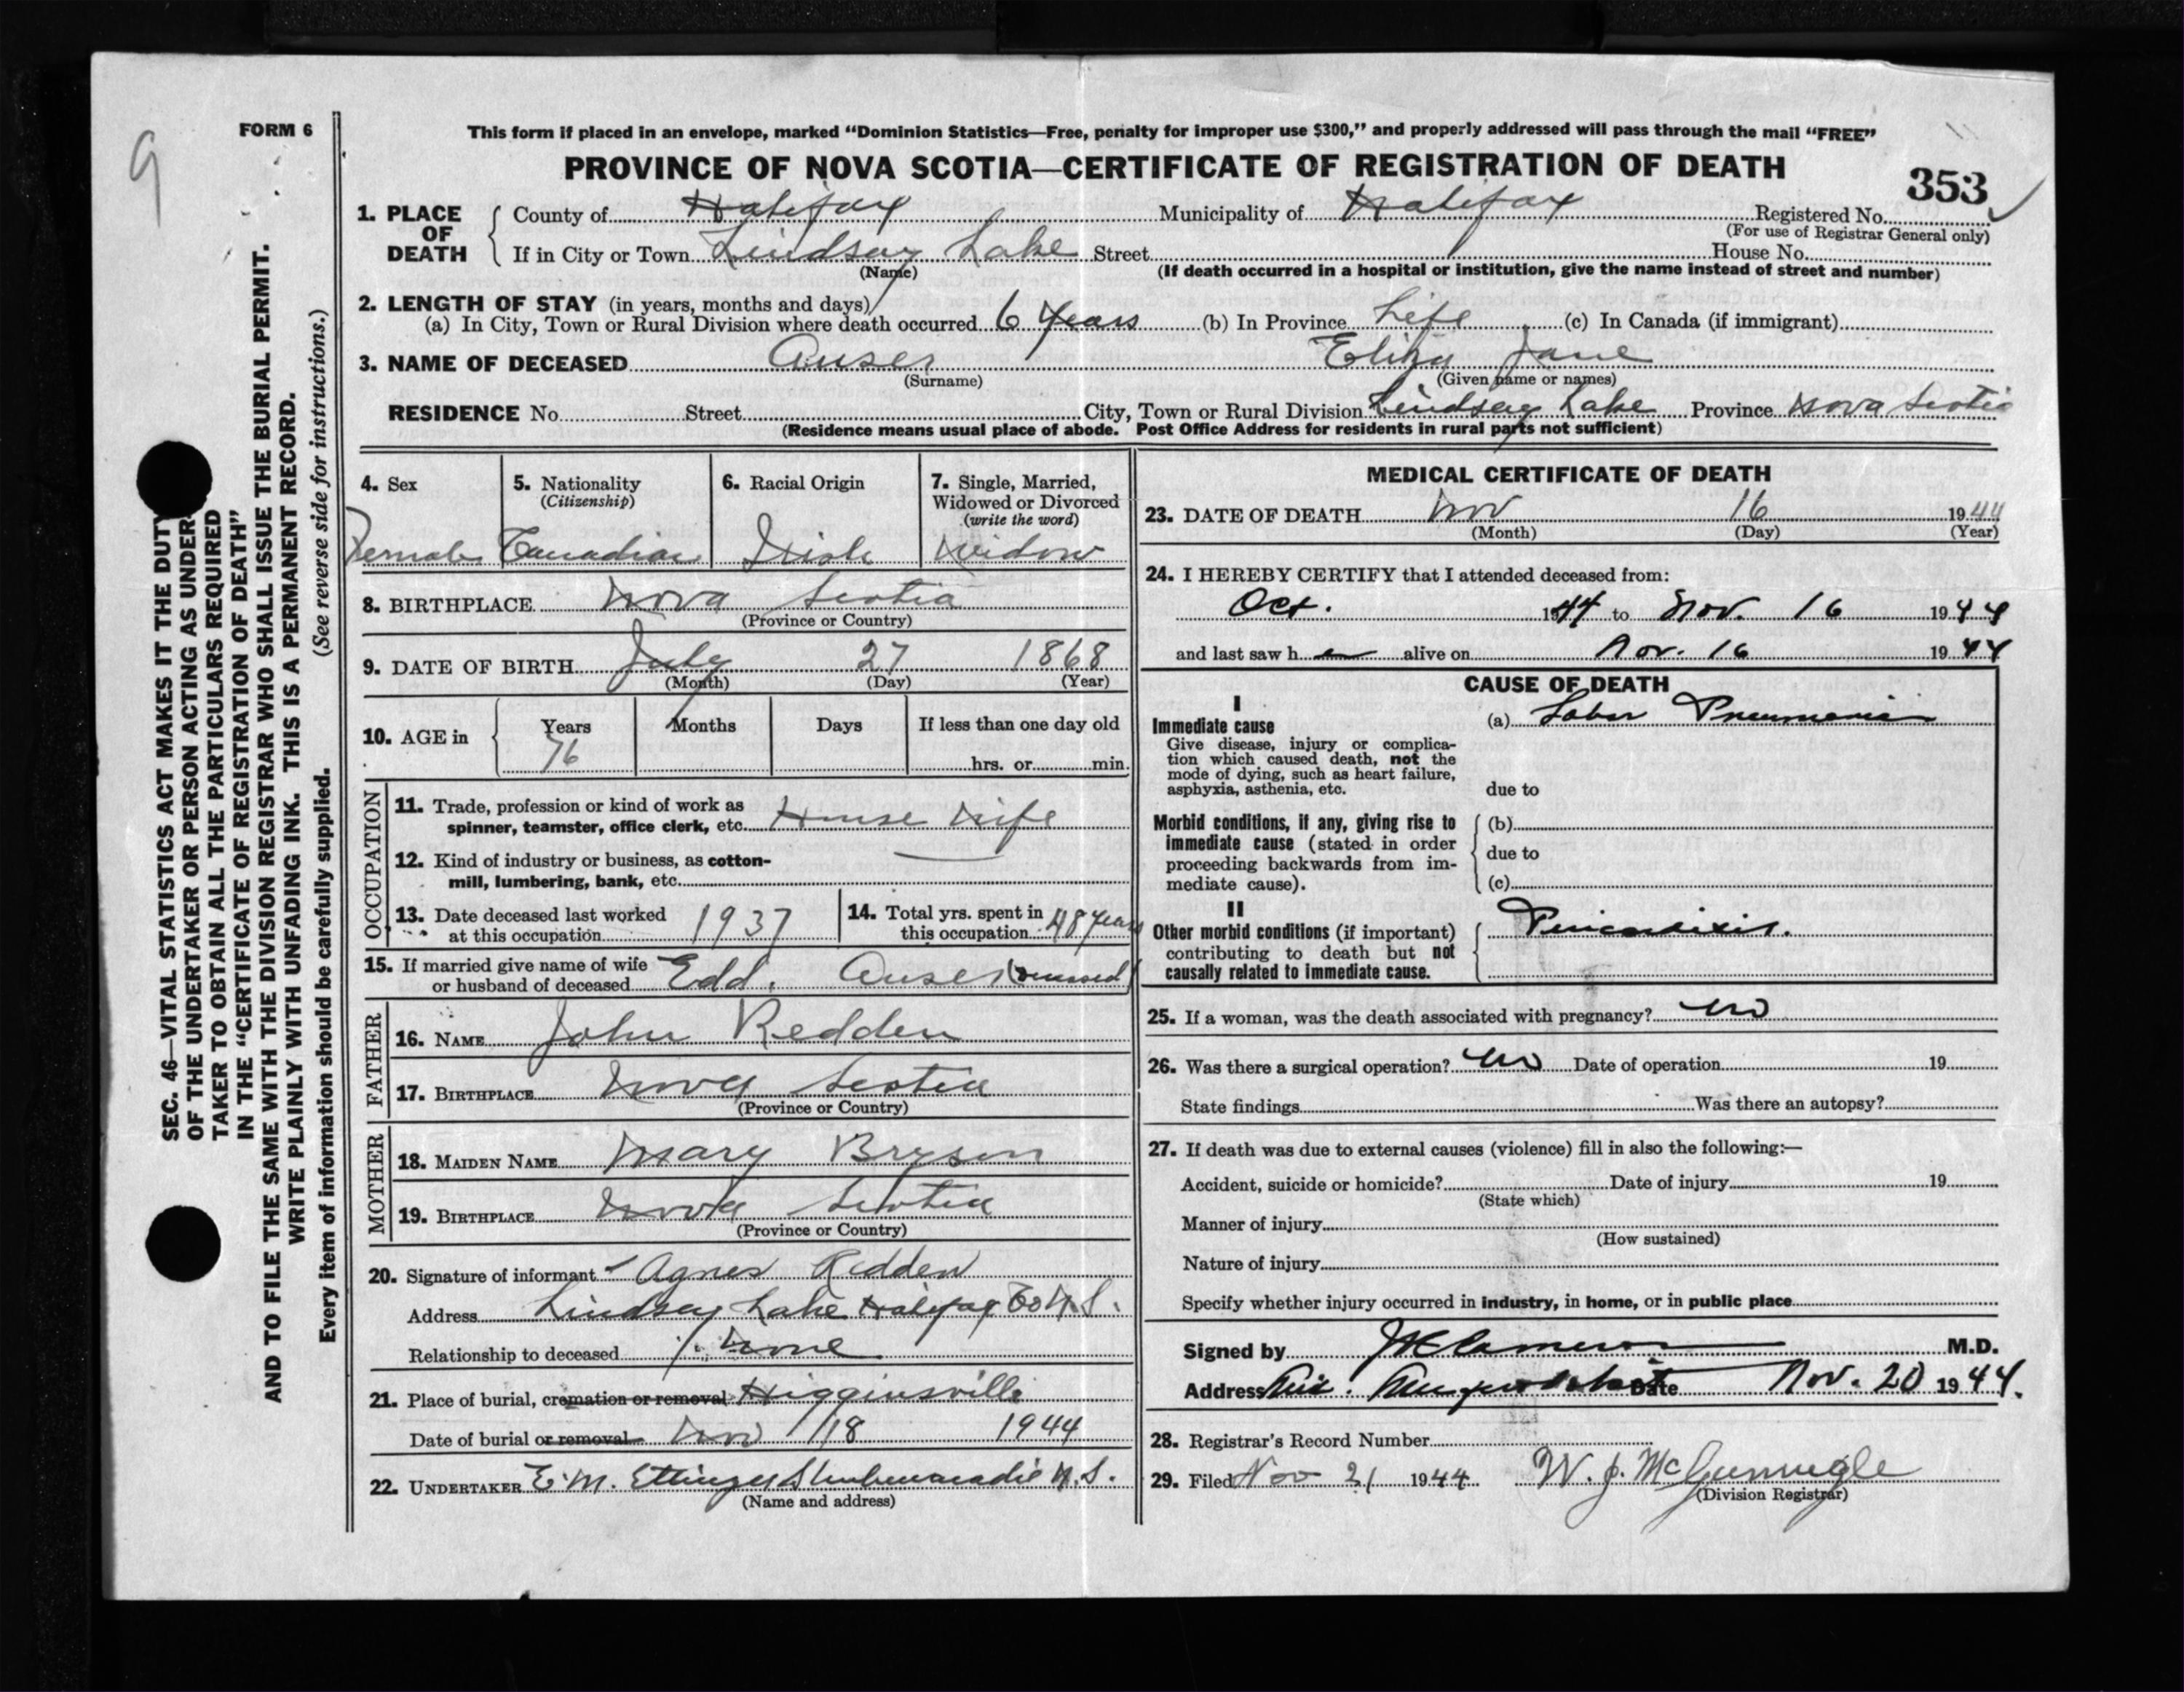 9
FORM 6
This form if placed in an envelope, marked “Dominion Statistics—Free, penalty for improper use $300,” and properly addressed will pass through the mail “FREE”
PROVINCE OF NOVA SCOTIA—CERTIFICATE OF REGISTRATION OF DEATH
353
1. PLACE OF DEATH
County of Halifax Municipality of Halifax Registered No.
(For use of Registrar General only)
If in City or Town Lindsay Lake Street House No.
(Name) (If death occurred in a hospital or institution, give the name instead of street and number)
2. LENGTH OF STAY (in years, months and days)
(a) In City, Town or Rural Division where death occurred 6 Years (b) In Province Life (c) In Canada (if immigrant)
3. NAME OF DECEASED Auser Eliza Jane
(Surname) (Given name or names)
RESIDENCE No. Street City, Town or Rural Division Lindsay Lake Province Nova Scotia
(Residence means usual place of abode. Post Office Address for residents in rural parts not sufficient)
4. Sex
Female
5. Nationality
(Citizenship)
Canadian
6. Racial Origin
Irish
7. Single, Married,
Widowed or Divorced
(write the word)
Widow
8. BIRTHPLACE Nova Scotia
(Province or Country)
9. DATE OF BIRTH July 27 1868
(Month) (Day) (Year)
10. AGE in
Years Months Days If less than one day old
76 hrs. or min.
OCCUPATION
11. Trade, profession or kind of work as
spinner, teamster, office clerk, etc. House Wife
12. Kind of industry or business, as cotton-
mill, lumbering, bank, etc.
13. Date deceased last worked
at this occupation 1937
14. Total yrs. spent in
this occupation 48 years
15. If married give name of wife
or husband of deceased Edd. Auser
FATHER
16. NAME John Redden
17. BIRTHPLACE Nova Scotia
(Province or Country)
MOTHER
18. MAIDEN NAME Mary Bryson
19. BIRTHPLACE Nova Scotia
(Province or Country)
20. Signature of informant Agnes Redden
Address Lindsay Lake Halifax Co N.S.
Relationship to deceased None
21. Place of burial, cremation or removal Higginsville
Date of burial or removal Nov 18 1944
22. UNDERTAKER E.M. Ettinger Shubenacadie N.S.
(Name and address)
MEDICAL CERTIFICATE OF DEATH
23. DATE OF DEATH Nov 16 1944
(Month) (Day) (Year)
24. I HEREBY CERTIFY that I attended deceased from:
Oct. 1944 to Nov. 16 1944
and last saw h er alive on Nov. 16 1944
CAUSE OF DEATH
I
Immediate cause
Give disease, injury or complica-
tion which caused death, not the
mode of dying, such as heart failure,
asphyxia, asthenia, etc.
(a) Lobar Pneumonia
due to
Morbid conditions, if any, giving rise to
immediate cause (stated in order
proceeding backwards from im-
mediate cause).
(b)
due to
(c)
II
Other morbid conditions (if important)
contributing to death but not
causally related to immediate cause.
Pericarditis.
25. If a woman, was the death associated with pregnancy? no
26. Was there a surgical operation? no Date of operation 19
State findings Was there an autopsy?
27. If death was due to external causes (violence) fill in also the following:—
Accident, suicide or homicide? Date of injury 19
(State which)
Manner of injury
(How sustained)
Nature of injury
Specify whether injury occurred in industry, in home, or in public place
Signed by Cameron M.D.
Address Date Nov. 20 1944.
28. Registrar's Record Number
29. Filed Nov 21 1944 W. J.
(Division Registrar)
SEC. 46—VITAL STATISTICS ACT MAKES IT THE DUTY
OF THE UNDERTAKER OR PERSON ACTING AS UNDER-
TAKER TO OBTAIN ALL THE PARTICULARS REQUIRED
IN THE “CERTIFICATE OF REGISTRATION OF DEATH”
AND TO FILE THE SAME WITH THE DIVISION REGISTRAR WHO SHALL ISSUE THE BURIAL PERMIT.
WRITE PLAINLY WITH UNFADING INK. THIS IS A PERMANENT RECORD.
Every item of information should be carefully supplied. (See reverse side for instructions.)